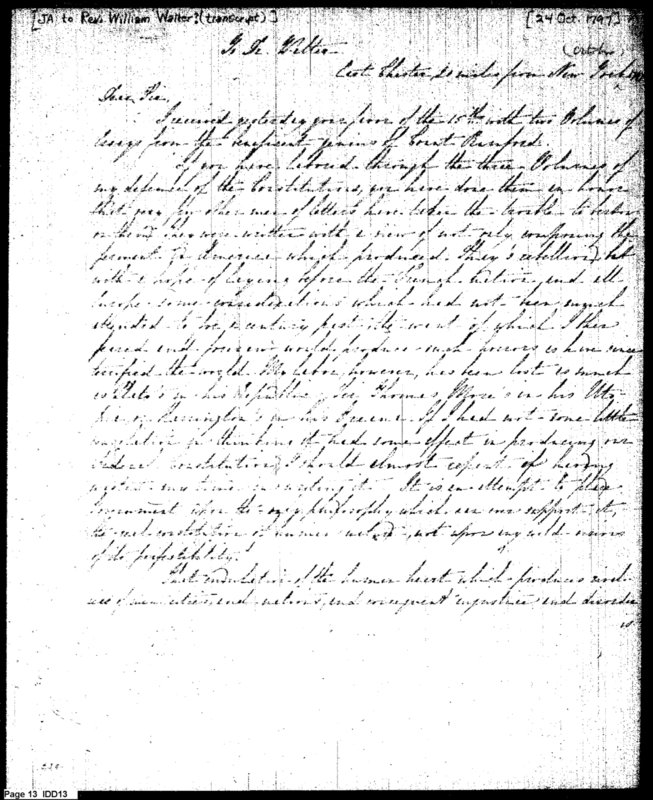 [JA to Rev. William Walter? (transcript)] [24 Oct. 1797]
(October)
East Chester 20 miles from New York
Dear Sir,
I received yesterday your favor of the 15th with two Volumes of
Essays from the beneficent genius of Count Rumford.
If you have laboured through the three Volumes of
my defence of the Constitutions, you have done them an honor
that very few other men of letters have taken the trouble to bestow
on them. They were written with a view of not only composing the
ferment in America which produced Shay's rebellion, but
with a hope of laying before the French nation and all
Europe some considerations which had not been much
attended to for a century past the want of which I then
feared and foresaw would produce such horrors as have since
terrified the world. My labor, however, has been lost as much
as Plato's in his Republic, Sir Thomas More's in his Uto-
pia or Harrington's in his Oceana. If I had not some little
consolation in thinking it had some effect in producing our
federal constitution, I should almost repent of having
wasted my time in writing it. It is an attempt to place
government upon the only philosophy which can ever support it,
the real constitution of human nature, not upon any wild visions
of its perfectibility.
That of the human heart which produces
and nations, and consequent injustice and disorder
is
Page 13 IDD13